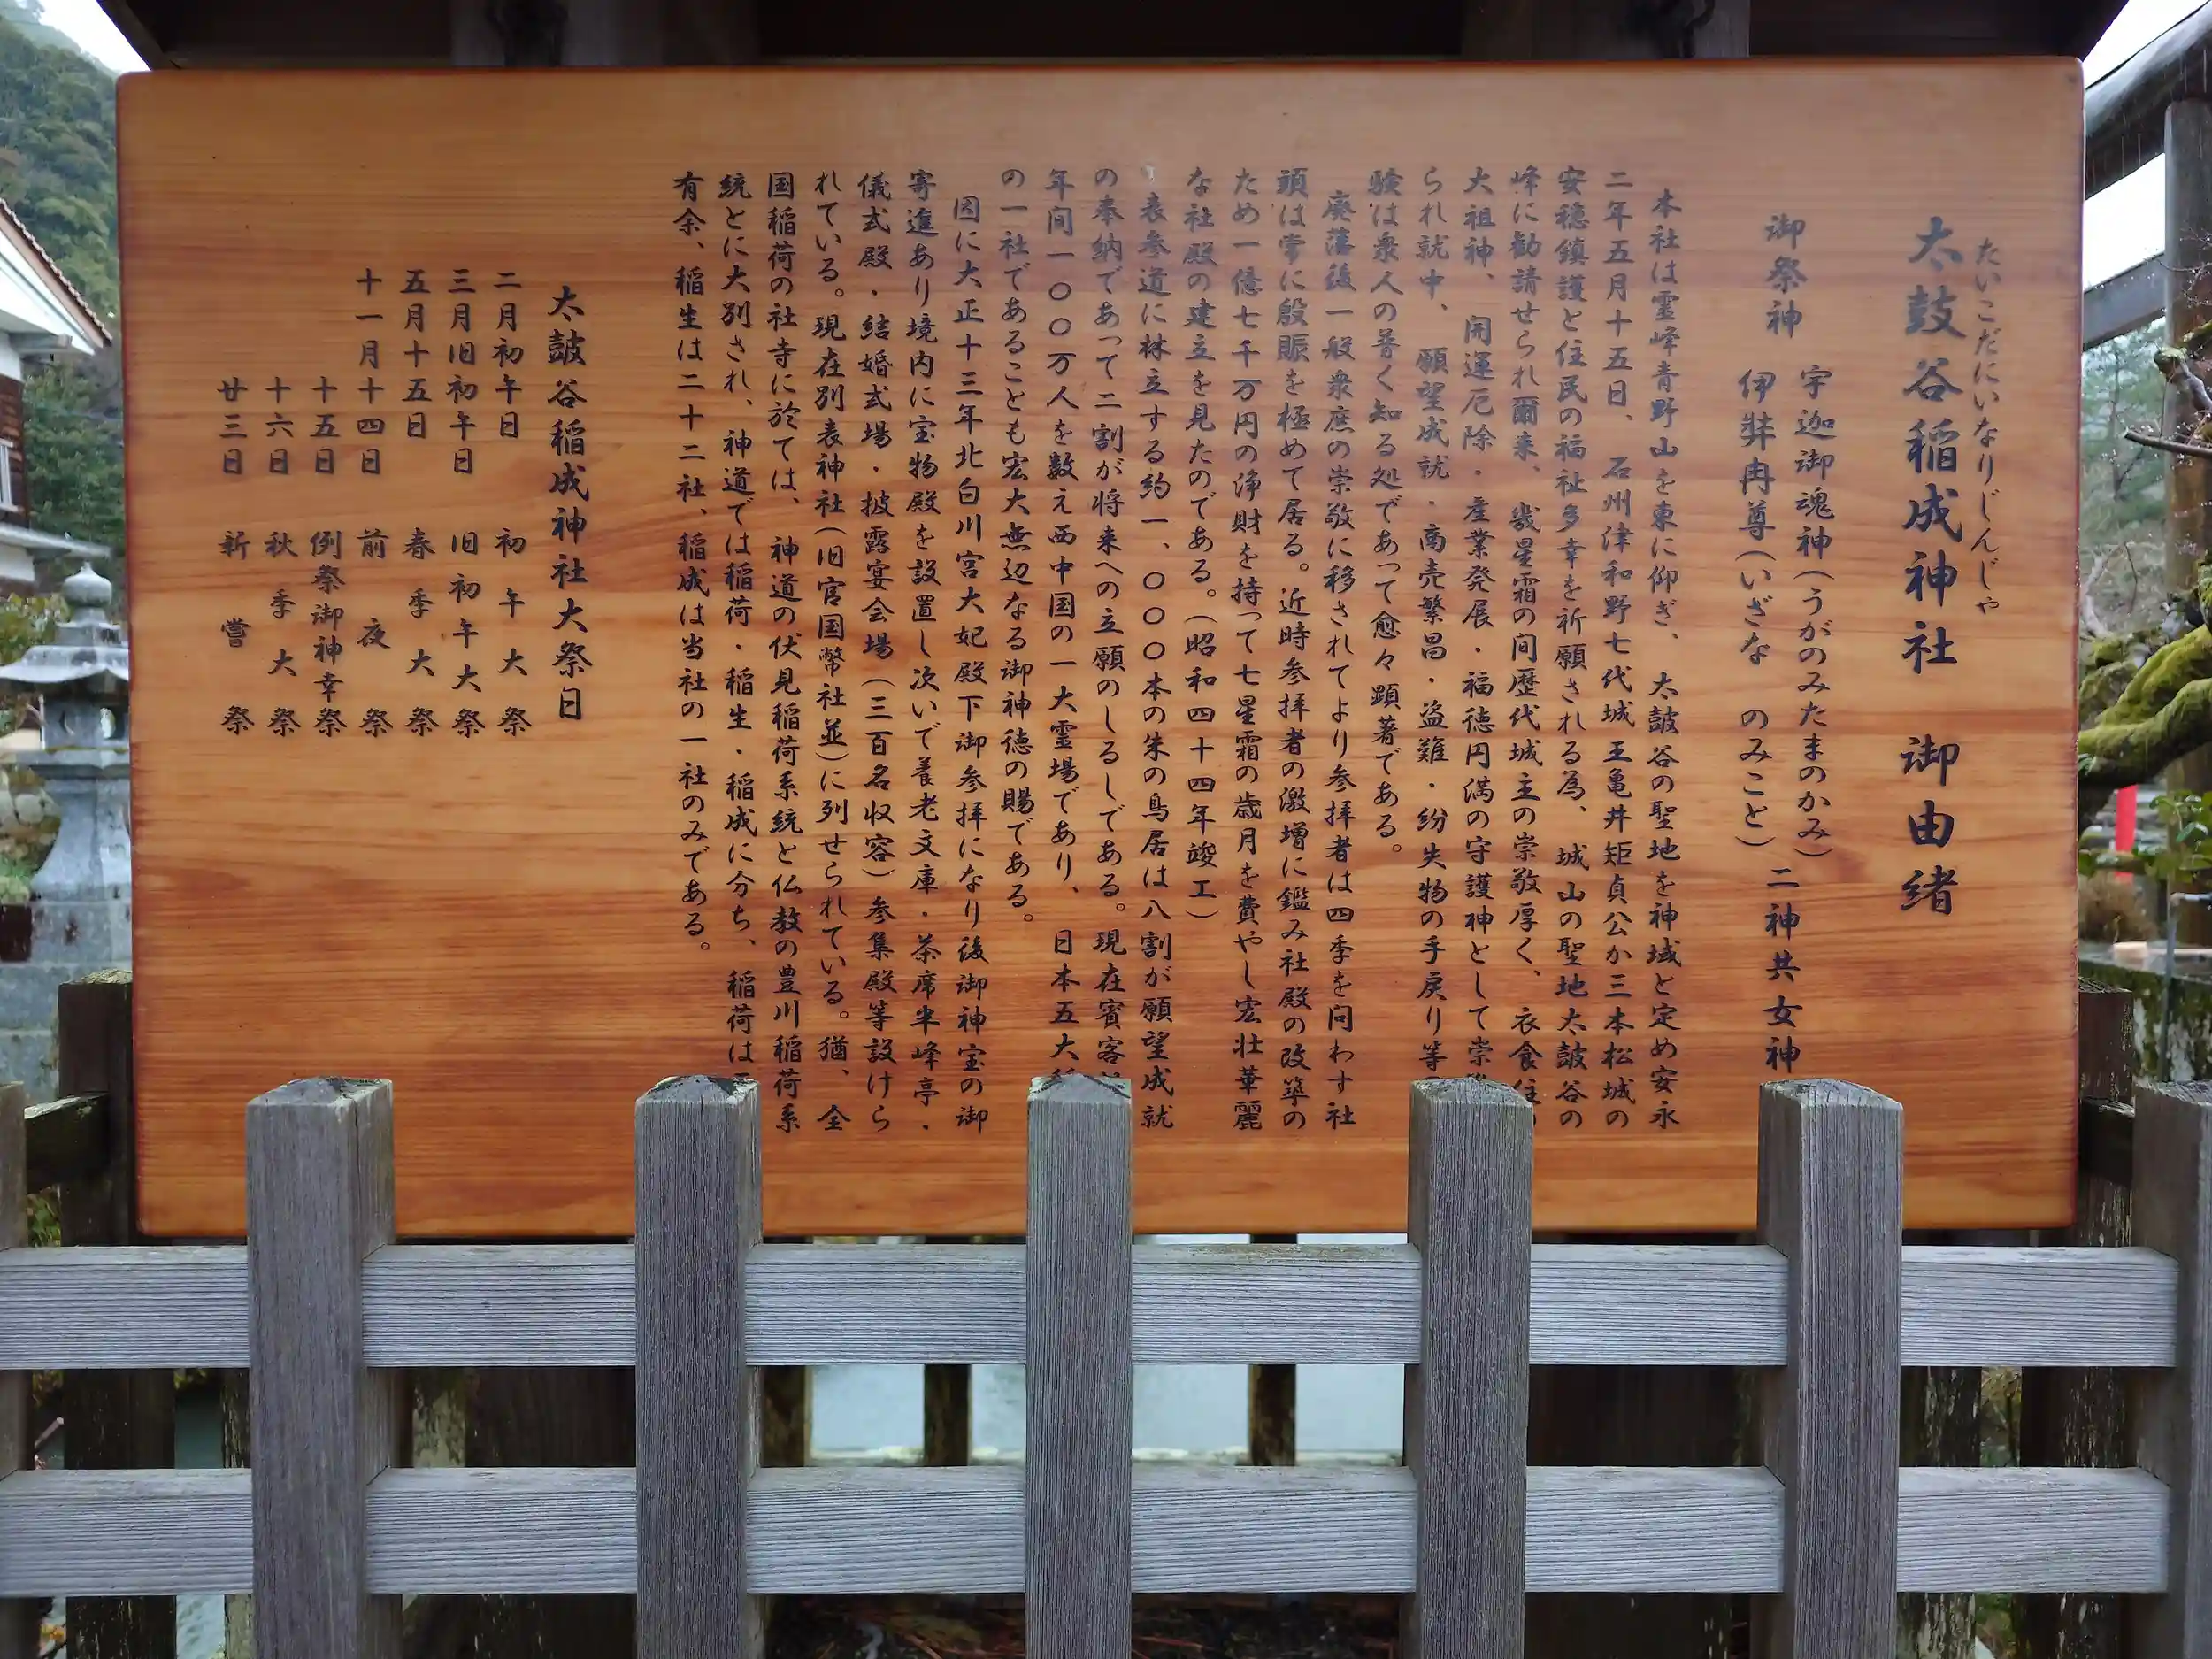 たいこだにいなりじんじゃ
太皷谷稲成神社 御由緒
宇迦御魂神(うがのみたまのかみ)
御祭神 二神共女神
伊弉冉尊(いざな のみこと)
本社は霊峰青野山を東に仰ぎ、太皷谷の聖地を神域と定め安永
二年五月十五日、石州津和野七代城主亀井矩貞公か三本松城の
安穏鎮護と住民の福祉多幸を祈願される為、城山の聖地太皷谷の
峰に勧請せられ爾来、幾星霜の間歴代城主の崇敬厚く、衣食住
大祖神、開運厄除・産業発展・福徳円満の守護神として崇
られ就中、願望成就・商売繁昌・盗難・紛失物の手戻り等
験は衆人の普く知る処であって愈々顕著である。
廃藩後一般衆庶の崇敬に移されてより参拝者は四季を問わす社
頭は常に殷賑を極めて居る。近時参拝者の激増に鑑み社殿の改築の
ため一億七千万円の浄財を持って七星霜の歳月を費やし宏壮華麗
な社殿の建立を見たのである。(昭和四十四年竣工)
表参道に林立する約一、〇〇〇本の朱の鳥居は八割が願望成就
の奉納であって二割が将来への立願のしるしである。現在賓客
年間一〇〇万人を数え西中国の一大霊場であり、日本五大
の一社であることも宏大無辺なる御神徳の賜である。
因に大正十三年北白川宮大妃殿下御参拝になり後御神宝の御
寄進あり境内に宝物殿を設置し次いで養老文庫・茶席半峰亭・
儀式殿・結婚式場・披露宴会場(三百名収容)参集殿等設けら
れている。現在別表神社(旧官国幣社並)に列せられている。猶、全
国稲荷の社寺に於ては、神道の伏見稲荷系統と仏教の豊川稲荷系
統とに大別され、神道では稲荷・稲生・稲成に分ち、稲荷は
有余、稲生は二十二社、稲成は当社の一社のみである。
太皷谷稲成神社大祭日
二月初午日 初午大祭
三月旧初午日 旧初午大祭
五月十五日 春季大祭
十一月十四日 前夜祭
十五日 例祭御神幸祭
十六日 秋季大祭
廿三日 新嘗祭